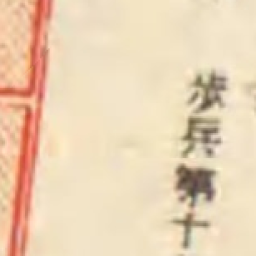 歩兵第十